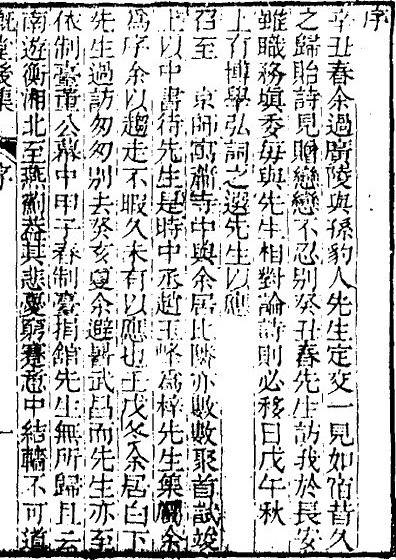 序
辛丑春余過廣陵與孫豹人先生定交一見如宿昔久
之歸貽詩見贈戀戀不忍别癸丑春先生訪我於長安
雖職務填委每與先生相對論詩則必移日戊午秋
上有博學弘詞之選先生以應
召至　京師寓蕭寺中與余居比隣亦數數聚首試竣
上以中書待先生是時中丞趙玉峰爲梓先生集屬余
爲序余以趨走不暇久未有以應也壬戌冬余居白下
先生過訪匆匆别去癸亥夏余避暑武昌而先生亦至
依制臺董公幕中甲子春制臺捐舘先生無所歸且云
南遊衡湘北至燕薊益其悲憂窮蹇意中結轖不可道
溉堂後集　序　一